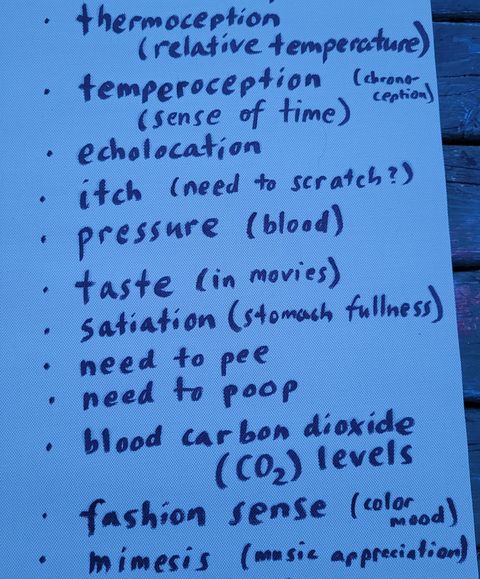 · thermoception
(relative temperature)
· temperoception (chrono-
ception)
(sense of time)
· echolocation
· itch (need to scratch?)
· pressure (blood)
· taste (in movies)
· satiation (stomach fullness)
· need to pee
· need to poop
· blood carbon dioxide
(CO₂) levels
· fashion sense (color
mood)
· mimesis (music appreciation)